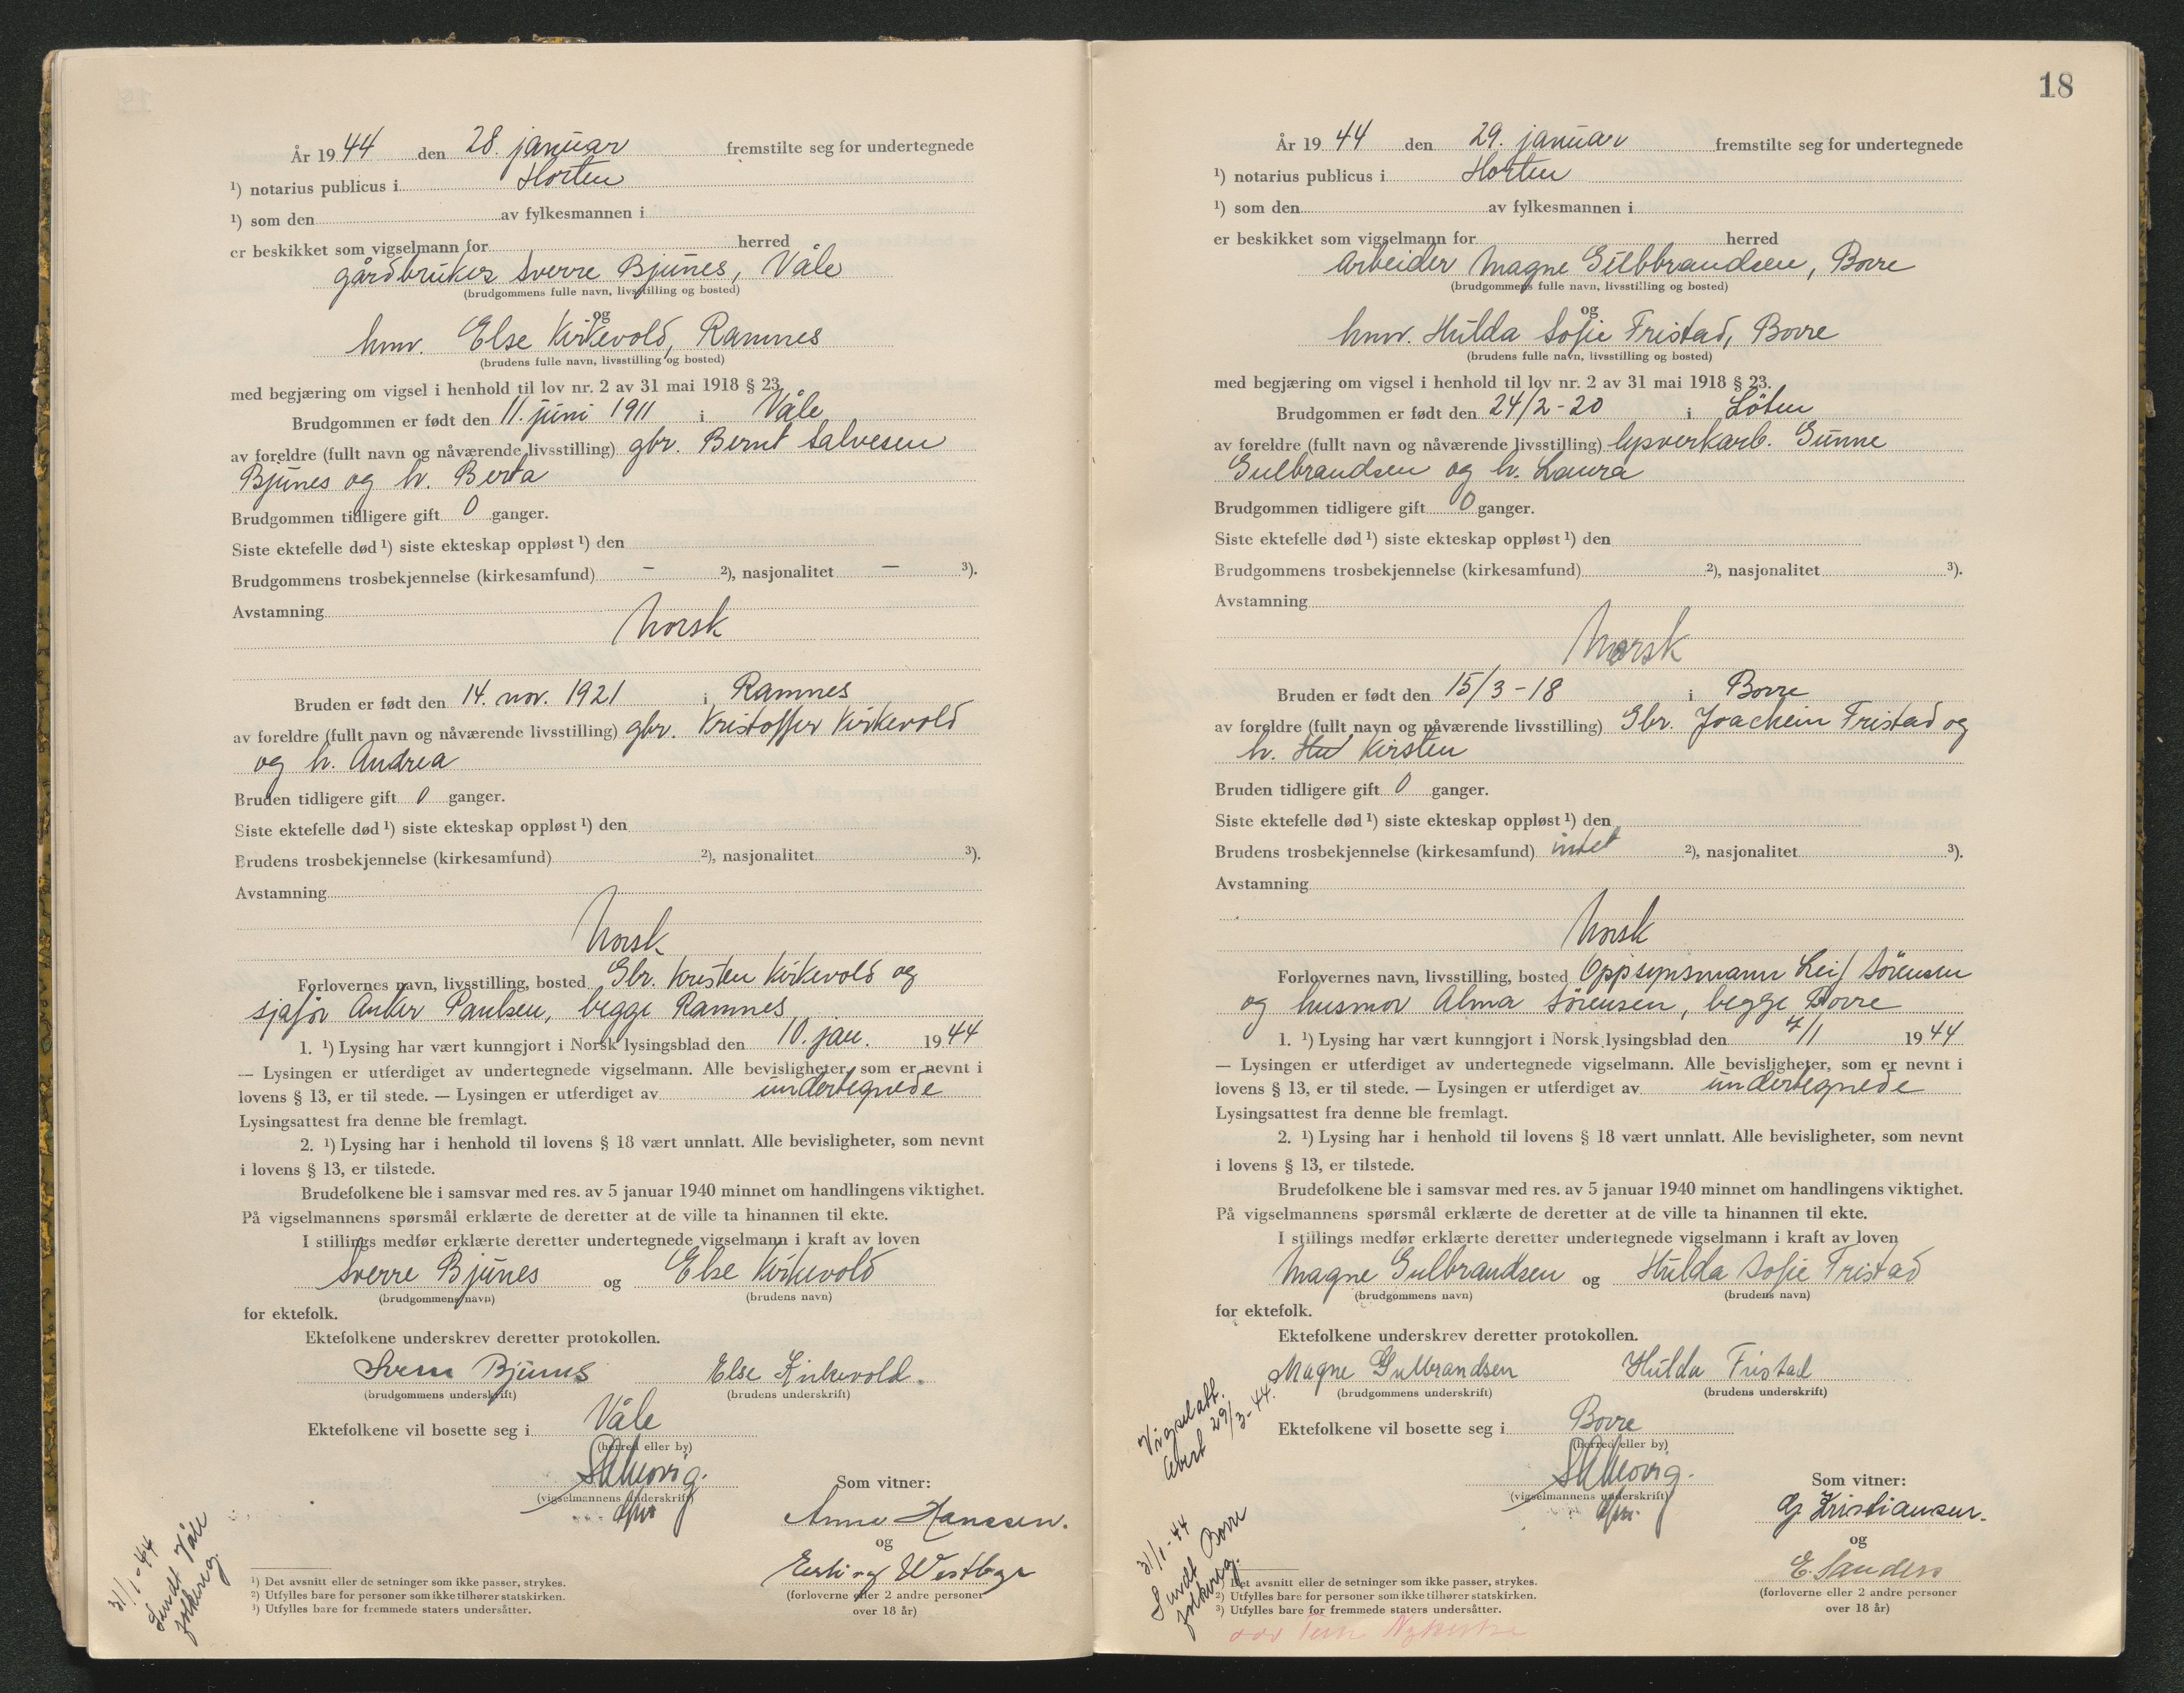 År 1944 den 28. januar fremstilte seg for undertegnede
¹) notarius publicus i Horten
¹) som den av fylkesmannen i
er beskikket som vigselmann for herred
gårdbruker Sverre Bjunes, Våle
(brudgommens fulle navn, livsstilling og bosted)
og
hmv. Else Kirkevold, Ramnes
(brudens fulle navn, livsstilling og bosted)
med begjæring om vigsel i henhold til lov nr. 2 av 31 mai 1918 § 23.
Brudgommen er født den 11. juni 1911 i Våle
av foreldre (fullt navn og nåværende livsstilling) gbr. Bernt Salvesen
Bjunes og h. Berta
Brudgommen tidligere gift 0 ganger.
Siste ektefelle død ¹) siste ekteskap oppløst ¹) den
Brudgommens trosbekjennelse (kirkesamfund) – ²), nasjonalitet – ³).
Avstamning
Norsk
Bruden er født den 14. nov. 1921 i Ramnes
av foreldre (fullt navn og nåværende livsstilling) gbr. Kristoffer Kirkevold
og h. Andrea
Bruden tidligere gift 0 ganger.
Siste ektefelle død ¹) siste ekteskap oppløst ¹) den
Brudens trosbekjennelse (kirkesamfund) ²), nasjonalitet ³).
Avstamning
Norsk
Forlovernes navn, livsstilling, bosted Gbr. Kristen Kirkevold og
sjafør Anker Paulsen, begge Ramnes
1. ¹) Lysing har vært kunngjort i Norsk lysingsblad den 10. jan. 1944
— Lysingen er utferdiget av undertegnede vigselmann. Alle bevisligheter, som er nevnt i
lovens § 13, er til stede. — Lysingen er utferdiget av undertegnede
Lysingsattest fra denne ble fremlagt.
2. ¹) Lysing har i henhold til lovens § 18 vært unnlatt. Alle bevisligheter, som nevnt
i lovens § 13, er tilstede.
Brudefolkene ble i samsvar med res. av 5 januar 1940 minnet om handlingens viktighet.
På vigselmannens spørsmål erklærte de deretter at de ville ta hinannen til ekte.
I stillings medfør erklærte deretter undertegnede vigselmann i kraft av loven
Sverre Bjunes og Else Kirkevold
(brudgommens navn) (brudens navn)
for ektefolk.
Ektefolkene underskrev deretter protokollen.
Sverre Bjunes Else Kirkevold.
(brudgommens underskrift) (brudens underskrift)
Ektefolkene vil bosette seg i Våle
(herred eller by)
(vigselmannens underskrift)
Som vitner:
Anne Hanssen.
og
Erling
(forloverne eller 2 andre personer
over 18 år)
31/1-44
Sendt Våle
folkereg.
¹) Det avsnitt eller de setninger som ikke passer, strykes.
²) Utfylles bare for personer som ikke tilhører statskirken.
³) Utfylles bare for fremmede staters undersåtter.
18
År 1944 den 29. januar fremstilte seg for undertegnede
¹) notarius publicus i Horten
¹) som den av fylkesmannen i
er beskikket som vigselmann for herred
Arbeider Magne Gulbbrandsen, Borre
(brudgommens fulle navn, livsstilling og bosted)
og
hmv. Hulda Sofie Fristad, Borre
(brudens fulle navn, livsstilling og bosted)
med begjæring om vigsel i henhold til lov nr. 2 av 31 mai 1918 § 23.
Brudgommen er født den 24/2-20 i Löten
av foreldre (fullt navn og nåværende livsstilling) lysverkarb. Gunne
Gulbrandsen og h. Laura
Brudgommen tidligere gift 0 ganger.
Siste ektefelle død ¹) siste ekteskap oppløst ¹) den
Brudgommens trosbekjennelse (kirkesamfund) ²), nasjonalitet ³).
Avstamning
Norsk
Bruden er født den 15/3-18 i Borre
av foreldre (fullt navn og nåværende livsstilling) Gbr. Joachein Fristad og
h. Hu Kirsten
Bruden tidligere gift 0 ganger.
Siste ektefelle død ¹) siste ekteskap oppløst ¹) den
Brudens trosbekjennelse (kirkesamfund) intet ²), nasjonalitet ³).
Avstamning
Norsk
Forlovernes navn, livsstilling, bosted Oppsynsmann Leif Sörensen
og husmor Alma Sörensen, begge Borre
1. ¹) Lysing har vært kunngjort i Norsk lysingsblad den 7/1 1944
— Lysingen er utferdiget av undertegnede vigselmann. Alle bevisligheter, som er nevnt i
lovens § 13, er til stede. — Lysingen er utferdiget av undertegnede
Lysingsattest fra denne ble fremlagt.
2. ¹) Lysing har i henhold til lovens § 18 vært unnlatt. Alle bevisligheter, som nevnt
i lovens § 13, er tilstede.
Brudefolkene ble i samsvar med res. av 5 januar 1940 minnet om handlingens viktighet.
På vigselmannens spørsmål erklærte de deretter at de ville ta hinannen til ekte.
I stillings medfør erklærte deretter undertegnede vigselmann i kraft av loven
Magne Gulbrandsen og Hulda Sofie Fristad
(brudgommens navn) (brudens navn)
for ektefolk.
Ektefolkene underskrev deretter protokollen.
Magne Gulbrandsen Hulda Fristad
(brudgommens underskrift) (brudens underskrift)
Ektefolkene vil bosette seg i Borre
(herred eller by)
(vigselmannens underskrift)
Som vitner:
Kristiansen.
og
E. Sanders
(forloverne eller 2 andre personer
over 18 år)
Vigselatt.
29/3-44.
31/1-44
Sendt Borre
folkereg.
¹) Det avsnitt eller de setninger som ikke passer, strykes.
²) Utfylles bare for personer som ikke tilhører statskirken.
³) Utfylles bare for fremmede staters undersåtter.